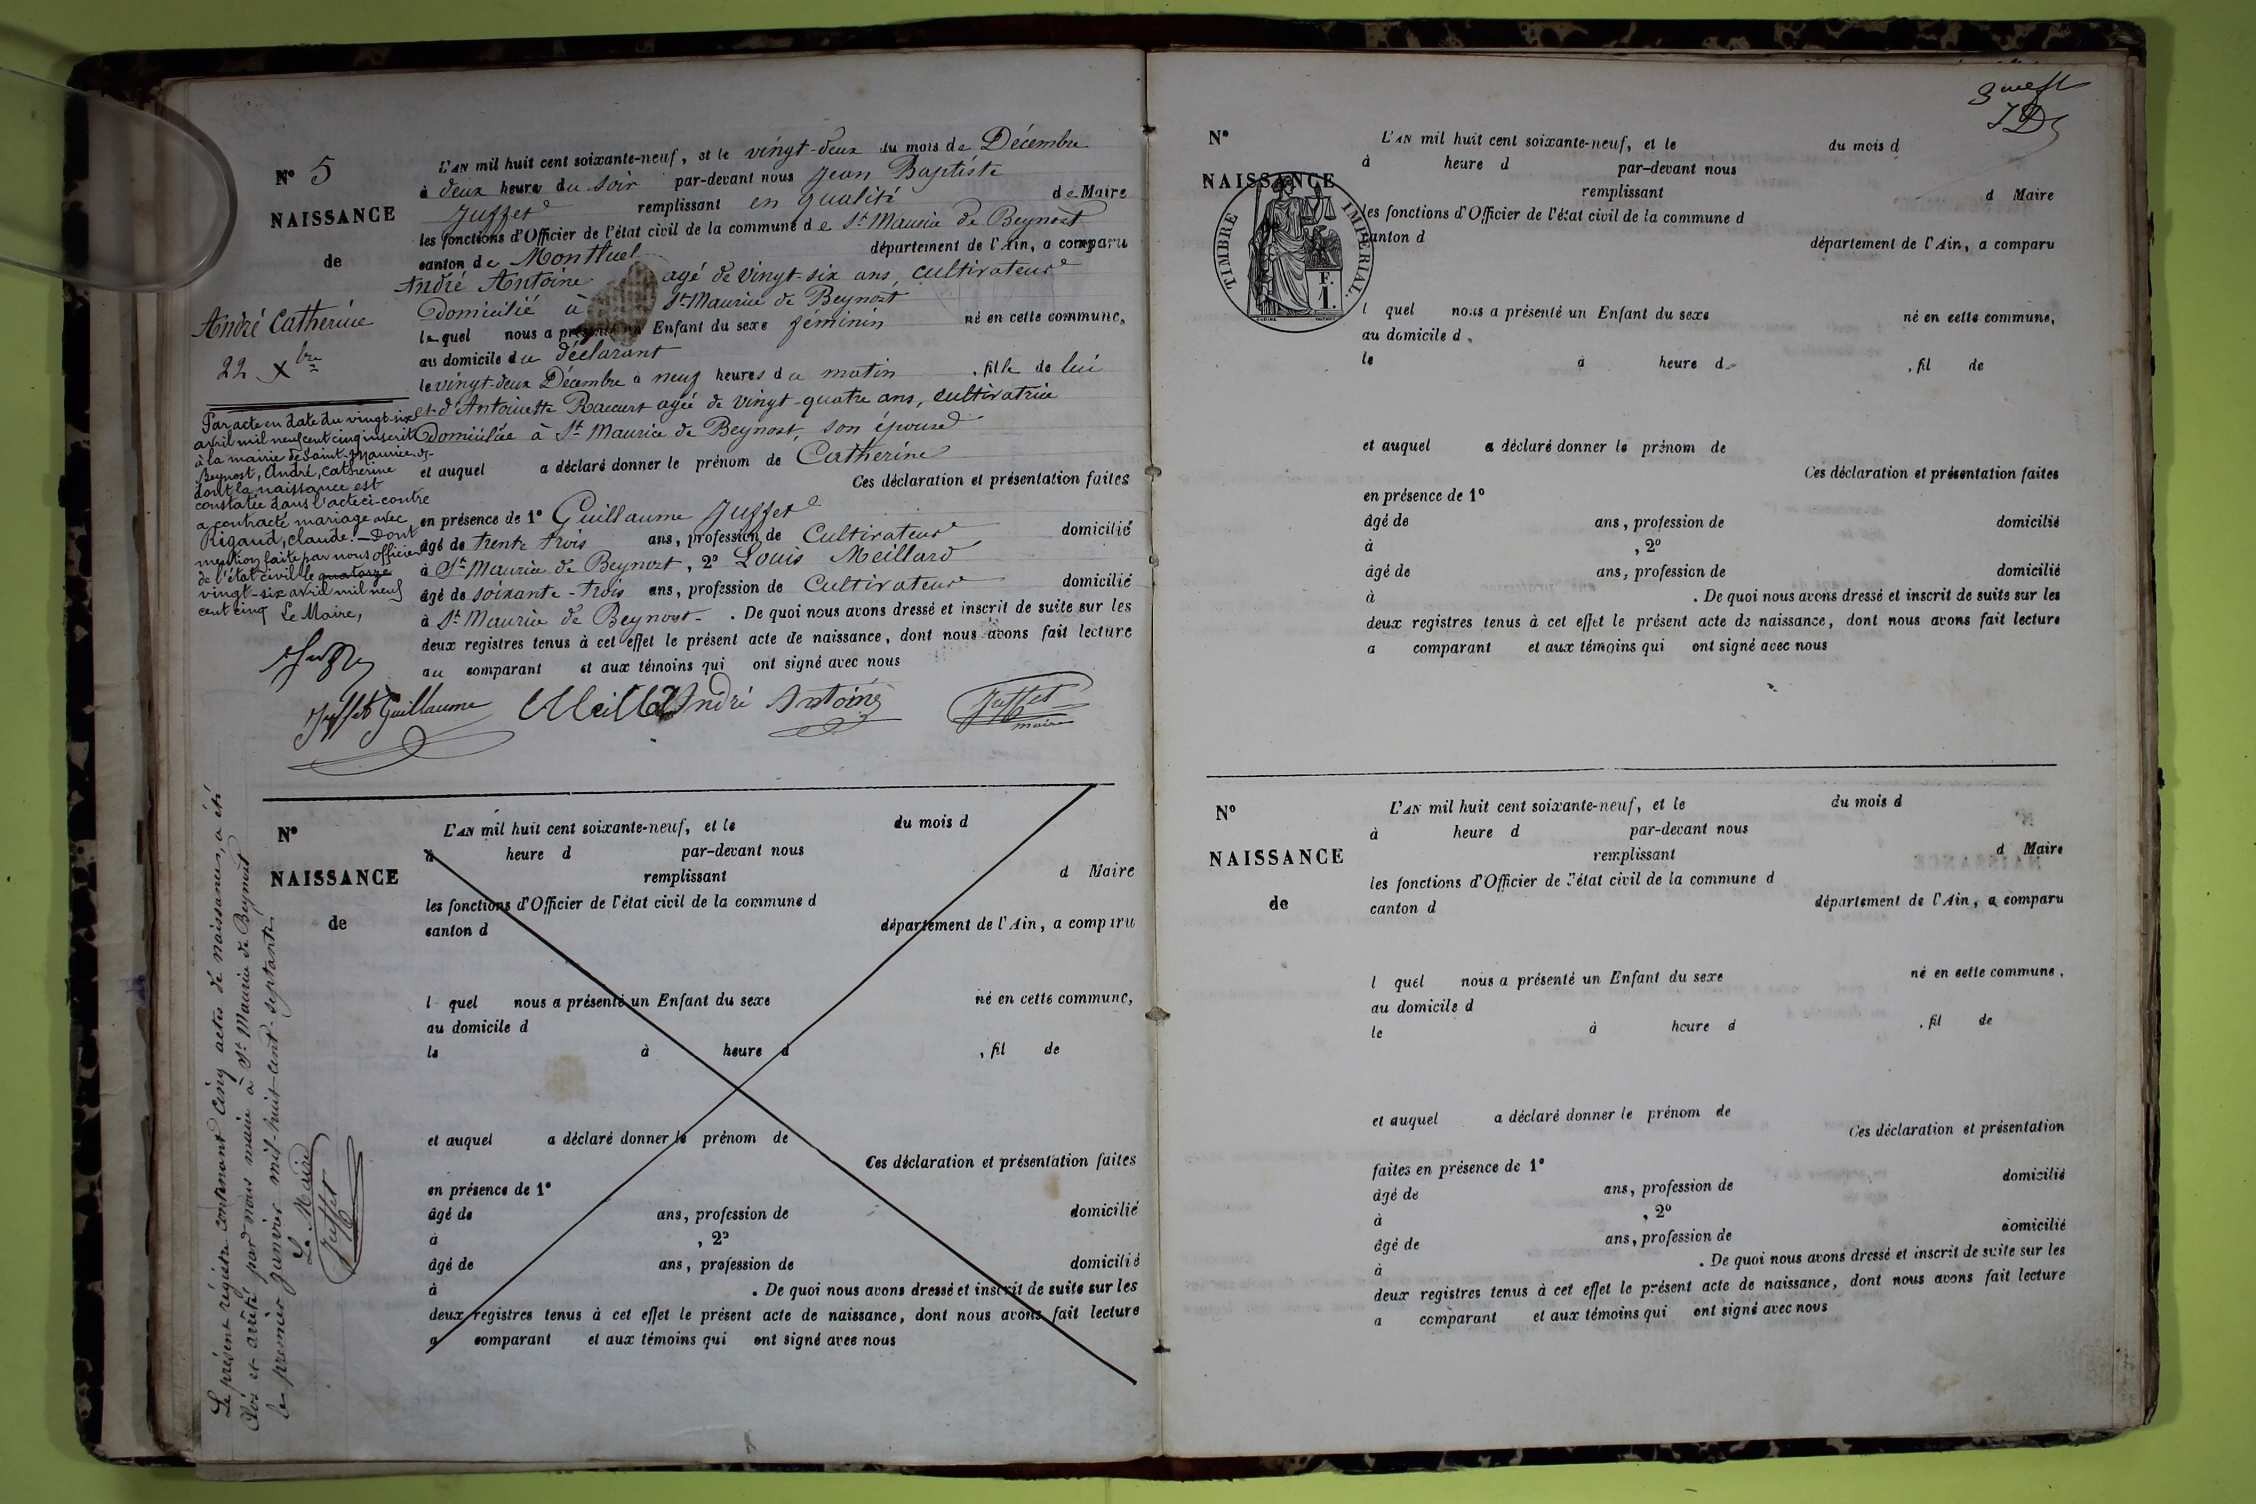 N° 5
NAISSANCE
de
André Catherine
22 Xbre
L'AN mil huit cent soixante-neuf, et le vingt-deux du mois de Décembre
à deux heures du soir par-devant nous Jean Baptiste
Juffet remplissant en qualité de Maire
les fonctions d'Officier de l'état civil de la commune de St Maurice de Beynost
canton de Montluel département de l'Ain, a comparu
André Antoine agé de vingt-six ans cultivateur
Domicilié à St Maurice de Beynost
lequel nous a présenté un Enfant du sexe féminin né en cette commune,
au domicile du déclarant
le vingt-deux Décembre à neuf heures du matin , fille de lui
et d'Antoinette Raccurt agée de vingt-quatre ans, cultivatrice
Domiciliée à St Maurice de Beynost, son épouse
et auquel a déclaré donner le prénom de Catherine
Ces déclaration et présentation faites
en présence de 1° Guillaume Juffet
âgé de trente trois ans, profession de Cultivateur domicilié
à St Maurice de Beynost, 2° Louis Meillard
âgé de soixante-trois ans, profession de Cultivateur domicilié
à St Maurice de Beynost . De quoi nous avons dressé et inscrit de suite sur les
deux registres tenus à cet effet le présent acte de naissance, dont nous avons fait lecture
au comparant et aux témoins qui ont signé avec nous
Juffet Guillaume André Antoine Juffet
maire
Par acte en date du vingt-six
avril mil neuf cent cinq inscrit
à la mairie de Saint-Maurice-de-
Beynost, André, Catherine
dont la naissance est
constatée dans l'acte ci-contre
a contracté mariage avec
Rigaud, Claude. — Dont
mention faite par nous officier
de l'état civil le quatorze
vingt-six avril mil neuf
cent cinq Le Maire,
N°
NAISSANCE
de
L'AN mil huit cent soixante-neuf, et le du mois d
à heure d par-devant nous
remplissant d Maire
les fonctions d'Officier de l'état civil de la commune d
canton d département de l'Ain, a comparu
l quel nous a présenté un Enfant du sexe né en cette commune,
au domicile d
le à heure d , fil de
et auquel a déclaré donner le prénom de
Ces déclaration et présentation faites
en présence de 1°
âgé de ans, profession de domicilié
à , 2°
âgé de ans, profession de domicilié
à . De quoi nous avons dressé et inscrit de suite sur les
deux registres tenus à cet effet le présent acte de naissance, dont nous avons fait lecture
a comparant et aux témoins qui ont signé avec nous
Le présent régistre contenant cinq actes de naissances, a été
Clos et arrêté par nous maire à St Maurice de Beynost
le premier janvier mil-huit-cent-septante
Le Maire
Juffet
N°
NAISSANCE
TIMBRE IMPERIAL.
1 F.
L'AN mil huit cent soixante-neuf, et le du mois d
à heure d par-devant nous
remplissant d Maire
les fonctions d'Officier de l'état civil de la commune d
canton d département de l'Ain, a comparu
l quel nous a présenté un Enfant du sexe né en cette commune,
au domicile d
le à heure d , fil de
et auquel a déclaré donner le prénom de
Ces déclaration et présentation faites
en présence de 1°
âgé de ans, profession de domicilié
à , 2°
âgé de ans, profession de domicilié
à . De quoi nous avons dressé et inscrit de suite sur les
deux registres tenus à cet effet le présent acte de naissance, dont nous avons fait lecture
a comparant et aux témoins qui ont signé avec nous
N°
NAISSANCE
de
L'AN mil huit cent soixante-neuf, et le du mois d
à heure d par-devant nous
remplissant d Maire
les fonctions d'Officier de l'état civil de la commune d
canton d département de l'Ain, a comparu
l quel nous a présenté un Enfant du sexe né en cette commune,
au domicile d
le à heure d , fil de
et auquel a déclaré donner le prénom de
Ces déclaration et présentation
faites en présence de 1°
âgé de ans, profession de domicilié
à , 2°
âgé de ans, profession de domicilié
à . De quoi nous avons dressé et inscrit de suite sur les
deux registres tenus à cet effet le présent acte de naissance, dont nous avons fait lecture
a comparant et aux témoins qui ont signé avec nous